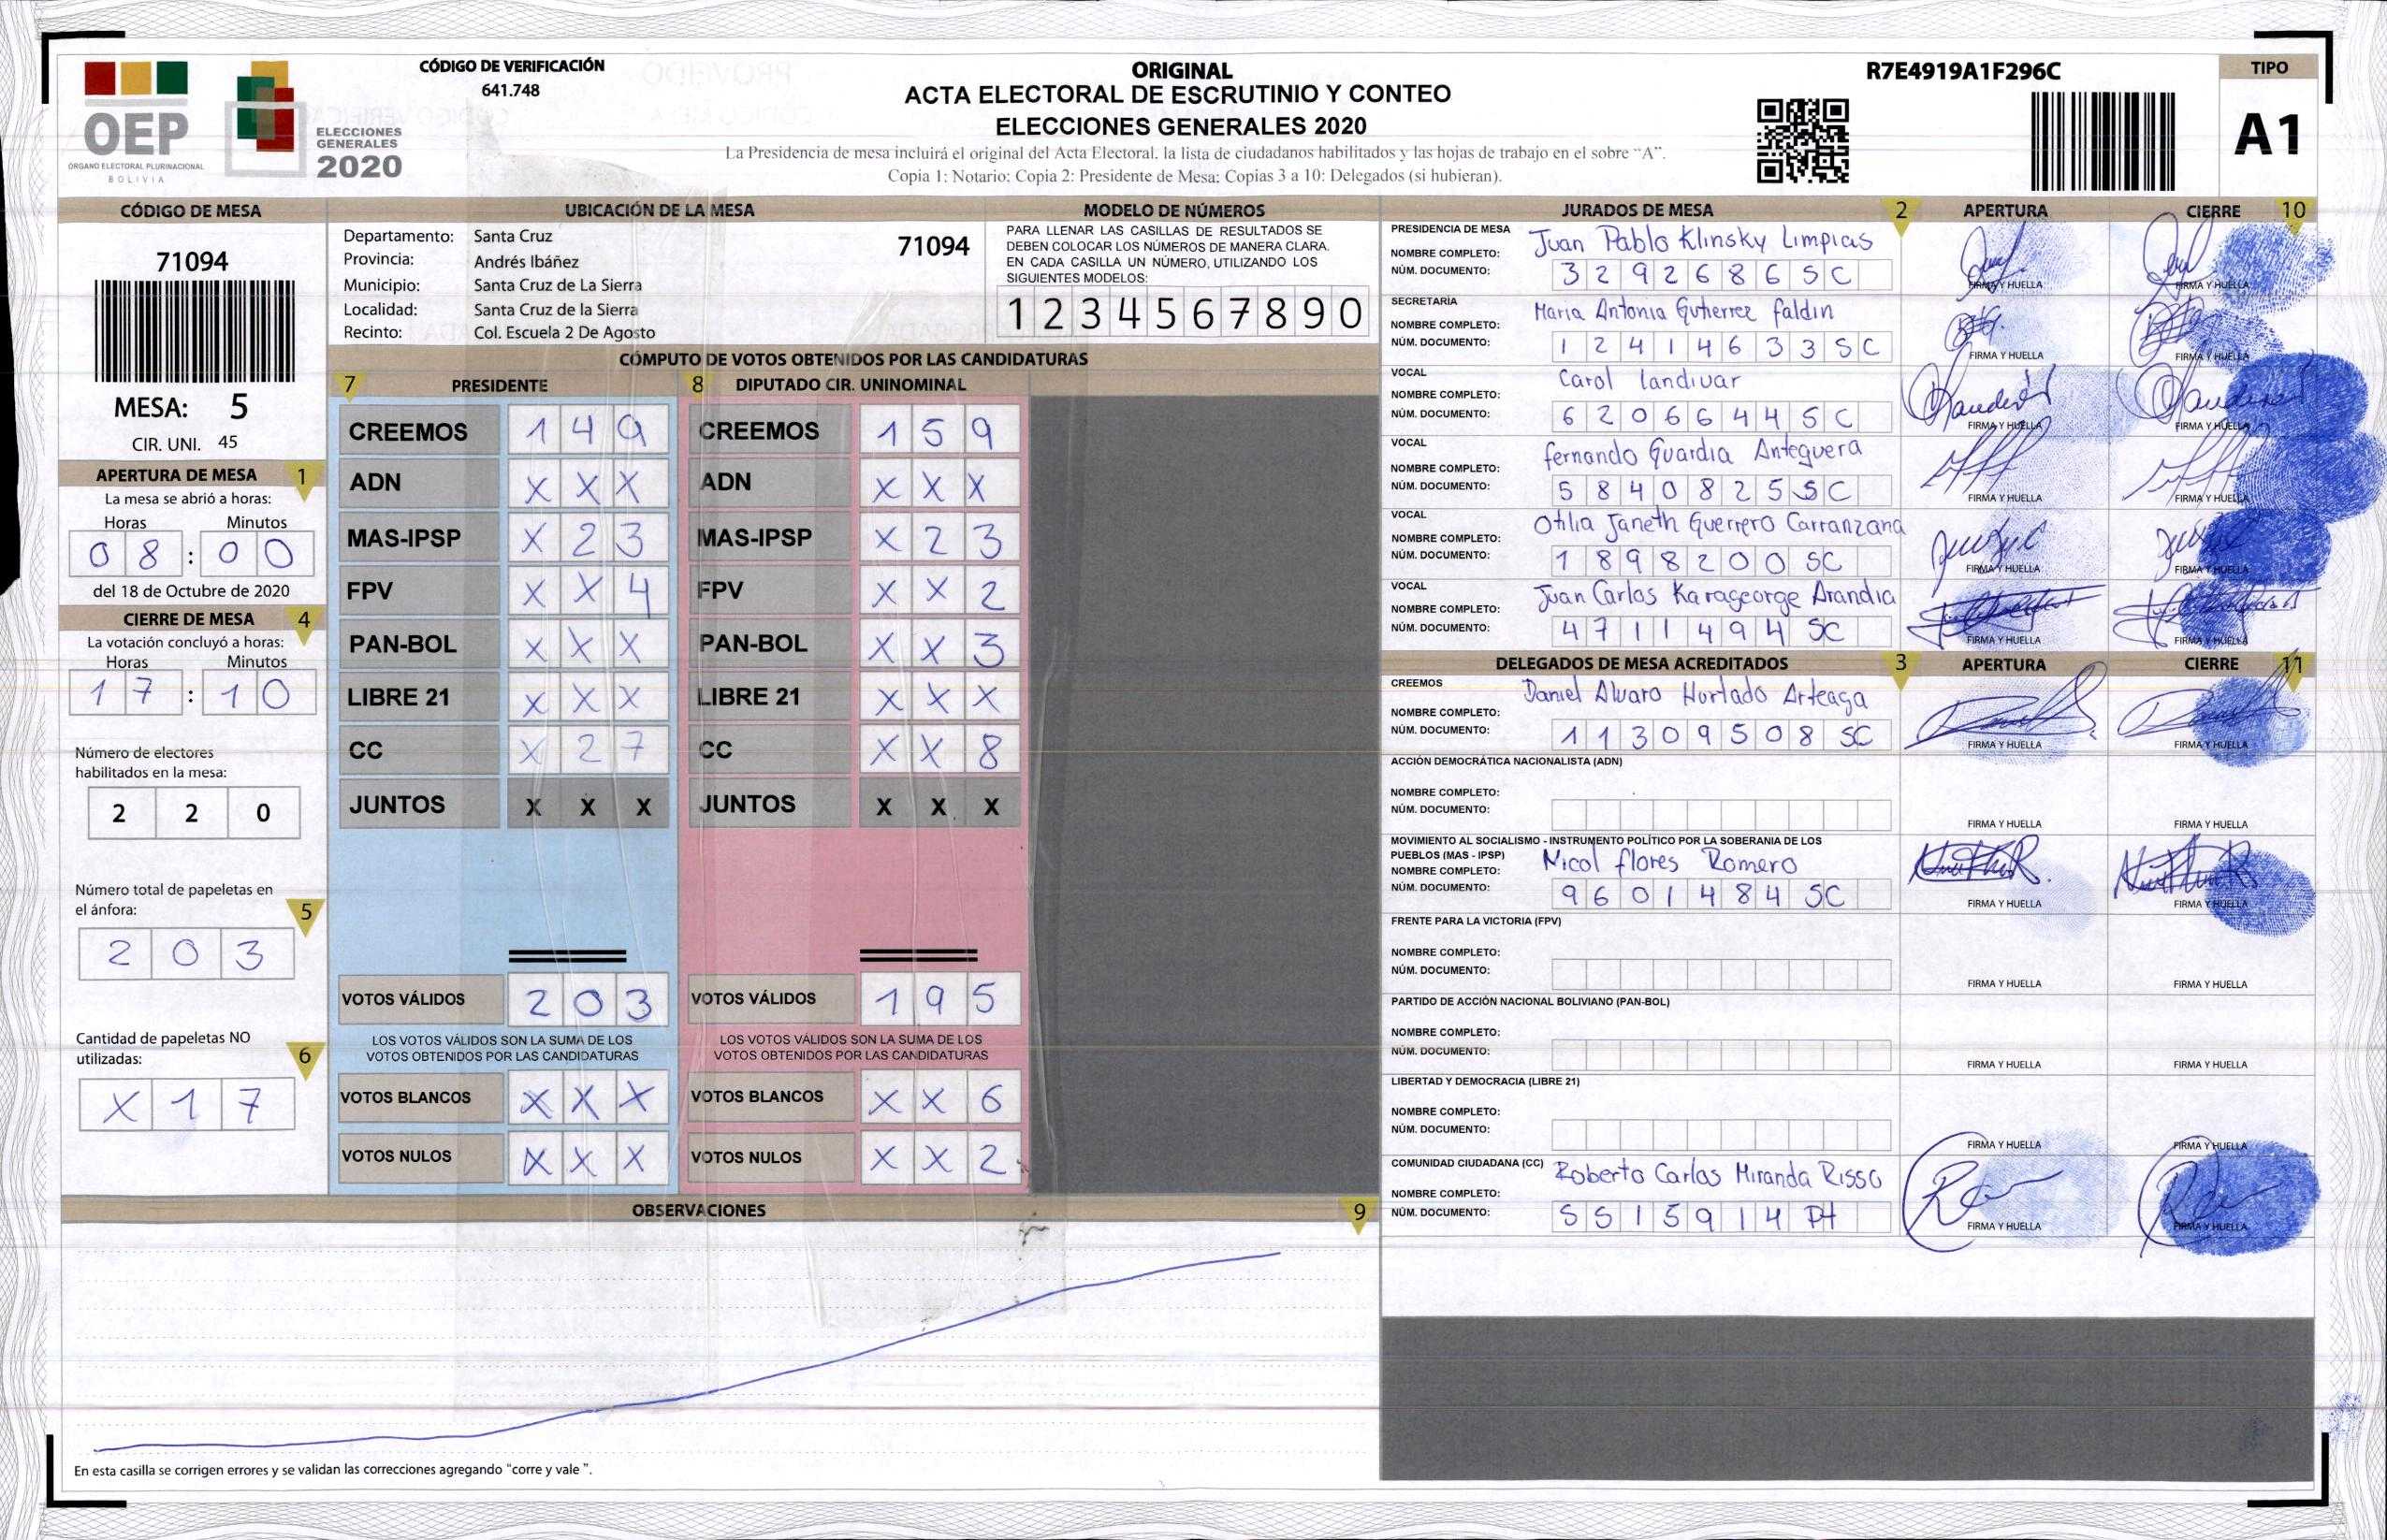 OEP
ÓRGANO ELECTORAL PLURINACIONAL
BOLIVIA
ELECCIONES
GENERALES
2020
CÓDIGO DE VERIFICACIÓN
641.748
ORIGINAL
ACTA ELECTORAL DE ESCRUTINIO Y CONTEO
ELECCIONES GENERALES 2020
La Presidencia de mesa incluirá el original del Acta Electoral, la lista de ciudadanos habilitados y las hojas de trabajo en el sobre “A”.
Copia 1: Notario; Copia 2: Presidente de Mesa; Copias 3 a 10: Delegados (si hubieran).
R7E4919A1F296C
TIPO
A1
CÓDIGO DE MESA
71094
MESA: 5
CIR. UNI. 45
APERTURA DE MESA 1
La mesa se abrió a horas:
Horas Minutos
0 8 : 0 0
del 18 de Octubre de 2020
CIERRE DE MESA 4
La votación concluyó a horas:
Horas Minutos
1 7 : 1 0
Número de electores
habilitados en la mesa:
2 2 0
Número total de papeletas en
el ánfora: 5
2 0 3
Cantidad de papeletas NO
utilizadas: 6
X 1 7
UBICACIÓN DE LA MESA
Departamento: Santa Cruz 71094
Provincia: Andrés Ibáñez
Municipio: Santa Cruz de La Sierra
Localidad: Santa Cruz de la Sierra
Recinto: Col. Escuela 2 De Agosto
MODELO DE NÚMEROS
PARA LLENAR LAS CASILLAS DE RESULTADOS SE
DEBEN COLOCAR LOS NÚMEROS DE MANERA CLARA.
EN CADA CASILLA UN NÚMERO, UTILIZANDO LOS
SIGUIENTES MODELOS:
1 2 3 4 5 6 7 8 9 0
CÓMPUTO DE VOTOS OBTENIDOS POR LAS CANDIDATURAS
7 PRESIDENTE 8 DIPUTADO CIR. UNINOMINAL
CREEMOS 1 4 9 CREEMOS 1 5 9
ADN X X X ADN X X X
MAS-IPSP X 2 3 MAS-IPSP X 2 3
FPV X X 4 FPV X X 2
PAN-BOL X X X PAN-BOL X X 3
LIBRE 21 X X X LIBRE 21 X X X
CC X 2 7 CC X X 8
JUNTOS X X X JUNTOS X X X
VOTOS VÁLIDOS 2 0 3 VOTOS VÁLIDOS 1 9 5
LOS VOTOS VÁLIDOS SON LA SUMA DE LOS LOS VOTOS VÁLIDOS SON LA SUMA DE LOS
VOTOS OBTENIDOS POR LAS CANDIDATURAS VOTOS OBTENIDOS POR LAS CANDIDATURAS
VOTOS BLANCOS X X X VOTOS BLANCOS X X 6
VOTOS NULOS X X X VOTOS NULOS X X 2
OBSERVACIONES 9
En esta casilla se corrigen errores y se validan las correcciones agregando “corre y vale ”.
JURADOS DE MESA 2 APERTURA CIERRE 10
PRESIDENCIA DE MESA
NOMBRE COMPLETO: Juan Pablo Klinsky Limpias
NÚM. DOCUMENTO: 3 2 9 2 6 8 6 SC FIRMA Y HUELLA FIRMA Y HUELLA
SECRETARÍA
NOMBRE COMPLETO: Maria Antonia Gutierrez faldin
NÚM. DOCUMENTO: 1 2 4 1 4 6 3 3 S C FIRMA Y HUELLA FIRMA Y HUELLA
VOCAL
NOMBRE COMPLETO: Carol landivar
NÚM. DOCUMENTO: 6 2 0 6 6 4 4 S C FIRMA Y HUELLA FIRMA Y HUELLA
VOCAL
NOMBRE COMPLETO: fernando Guardia Anteguera
NÚM. DOCUMENTO: 5 8 4 0 8 2 5 S C FIRMA Y HUELLA FIRMA Y HUELLA
VOCAL
NOMBRE COMPLETO: Otilia Janeth Guerrero Carranzana
NÚM. DOCUMENTO: 1 8 9 8 2 0 0 SC FIRMA Y HUELLA FIRMA Y HUELLA
VOCAL
NOMBRE COMPLETO: Juan Carlos Karageorge Arandia
NÚM. DOCUMENTO: 4 7 1 1 4 9 4 SC FIRMA Y HUELLA FIRMA Y HUELLA
DELEGADOS DE MESA ACREDITADOS 3 APERTURA CIERRE 11
CREEMOS
NOMBRE COMPLETO: Daniel Alvaro Hurtado Arteaga
NÚM. DOCUMENTO: 1 1 3 0 9 5 0 8 SC FIRMA Y HUELLA FIRMA Y HUELLA
ACCIÓN DEMOCRÁTICA NACIONALISTA (ADN)
NOMBRE COMPLETO:
NÚM. DOCUMENTO: FIRMA Y HUELLA FIRMA Y HUELLA
MOVIMIENTO AL SOCIALISMO - INSTRUMENTO POLÍTICO POR LA SOBERANIA DE LOS
PUEBLOS (MAS - IPSP)
NOMBRE COMPLETO: Nicol flores Romero
NÚM. DOCUMENTO: 9 6 0 1 4 8 4 SC FIRMA Y HUELLA FIRMA Y HUELLA
FRENTE PARA LA VICTORIA (FPV)
NOMBRE COMPLETO:
NÚM. DOCUMENTO: FIRMA Y HUELLA FIRMA Y HUELLA
PARTIDO DE ACCIÓN NACIONAL BOLIVIANO (PAN-BOL)
NOMBRE COMPLETO:
NÚM. DOCUMENTO: FIRMA Y HUELLA FIRMA Y HUELLA
LIBERTAD Y DEMOCRACIA (LIBRE 21)
NOMBRE COMPLETO:
NÚM. DOCUMENTO: FIRMA Y HUELLA FIRMA Y HUELLA
COMUNIDAD CIUDADANA (CC)
NOMBRE COMPLETO: Roberto Carlos Miranda Risso
NÚM. DOCUMENTO: 5 5 1 5 9 1 4 PT FIRMA Y HUELLA FIRMA Y HUELLA